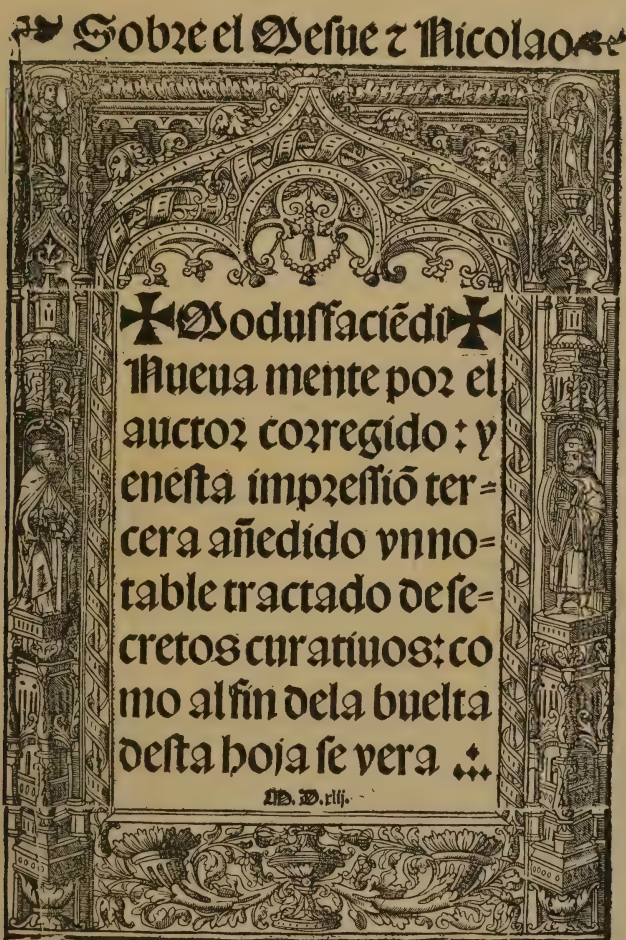 Sobre el Mesue ⁊ Nicolao
✠Modus faciẽdi✠
Nueua mente por el
auctor corregido: y
enesta impressiõ ter=
cera añedido vnno=
table tractado dese=
cretos curatiuos: co
mo alfin dela buelta
desta hoja se vera
M. D. xlij.